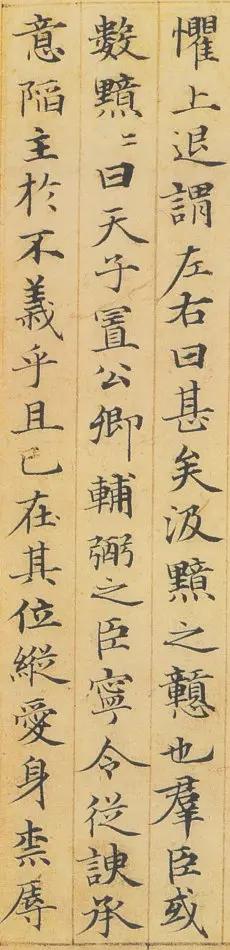 懼上退謂左右曰甚矣汲黯之戇也羣臣或
數黯〻曰天子置公卿輔弼之臣寧令從諛承
意陷主於不義乎且已在其位縱愛身柰辱